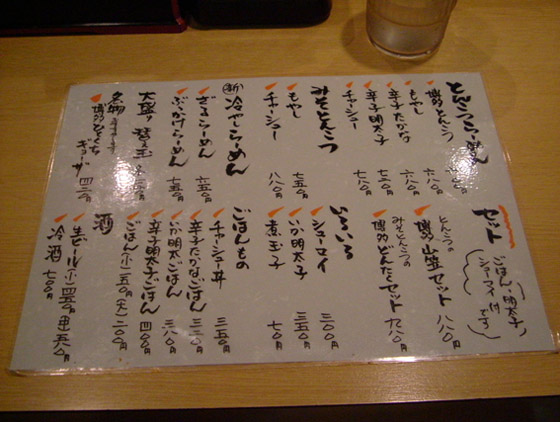 とんこつらーめん
博多とんこつ
もやし 六八〇円
辛子たかな 六八〇円
辛子明太子 七八〇円
チャーシュー 七八〇円
みそとんこつ
もやし 七五〇円
チャーシュー 八八〇円
新 冷やらーめん
ざるらーめん 六五〇円
ぶっかけらーめん 七五〇円
大盛り 替え玉
名物
博多ひとくちギョーザ 四二〇円
セット
ごはん・明太子
シューマイ付
です
とんこつの
博多山笠セット 八八〇円
みそとんこつの
博多どんたくセット 九八〇円
いろいろ
シューマイ 三〇〇円
いか明太子 三五〇円
煮玉子 七〇円
ごはんもの
チャーシュー丼 三五〇円
辛子たかなごはん 三三〇円
いか明太ごはん 三八〇円
辛子明太子ごはん 四〇〇円
ごはん(小)一五〇円(大)二〇〇円
酒
生ビール(小)四五〇円 中五八〇円
冷酒 七〇〇円